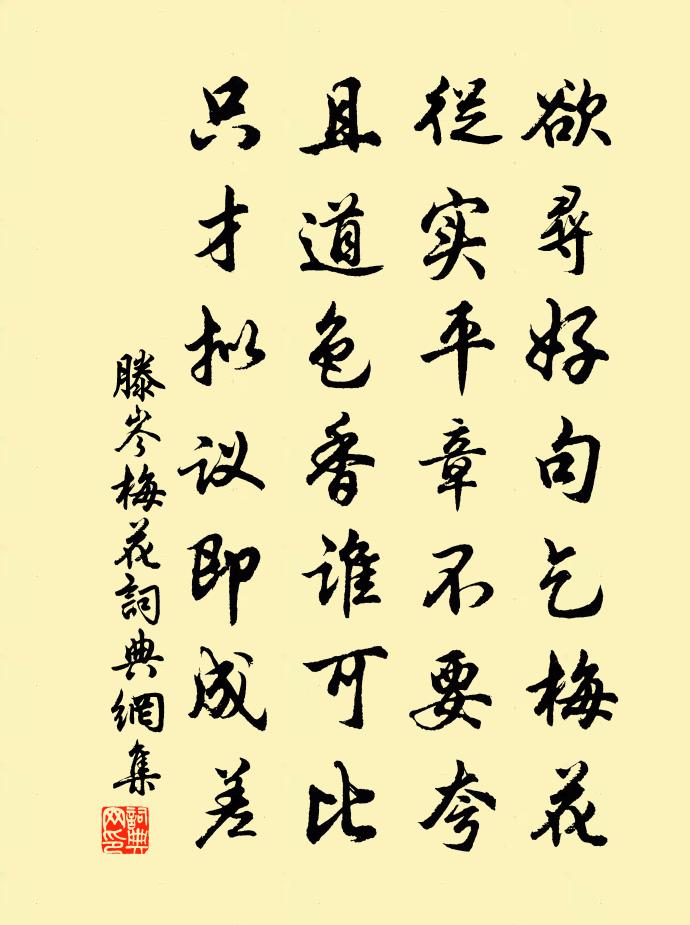 欲尋好句乞梅花
從实平章不要夸
且道色香誰可比
只才拟议即成差
滕岑梅花詞典網集
詞典
网印